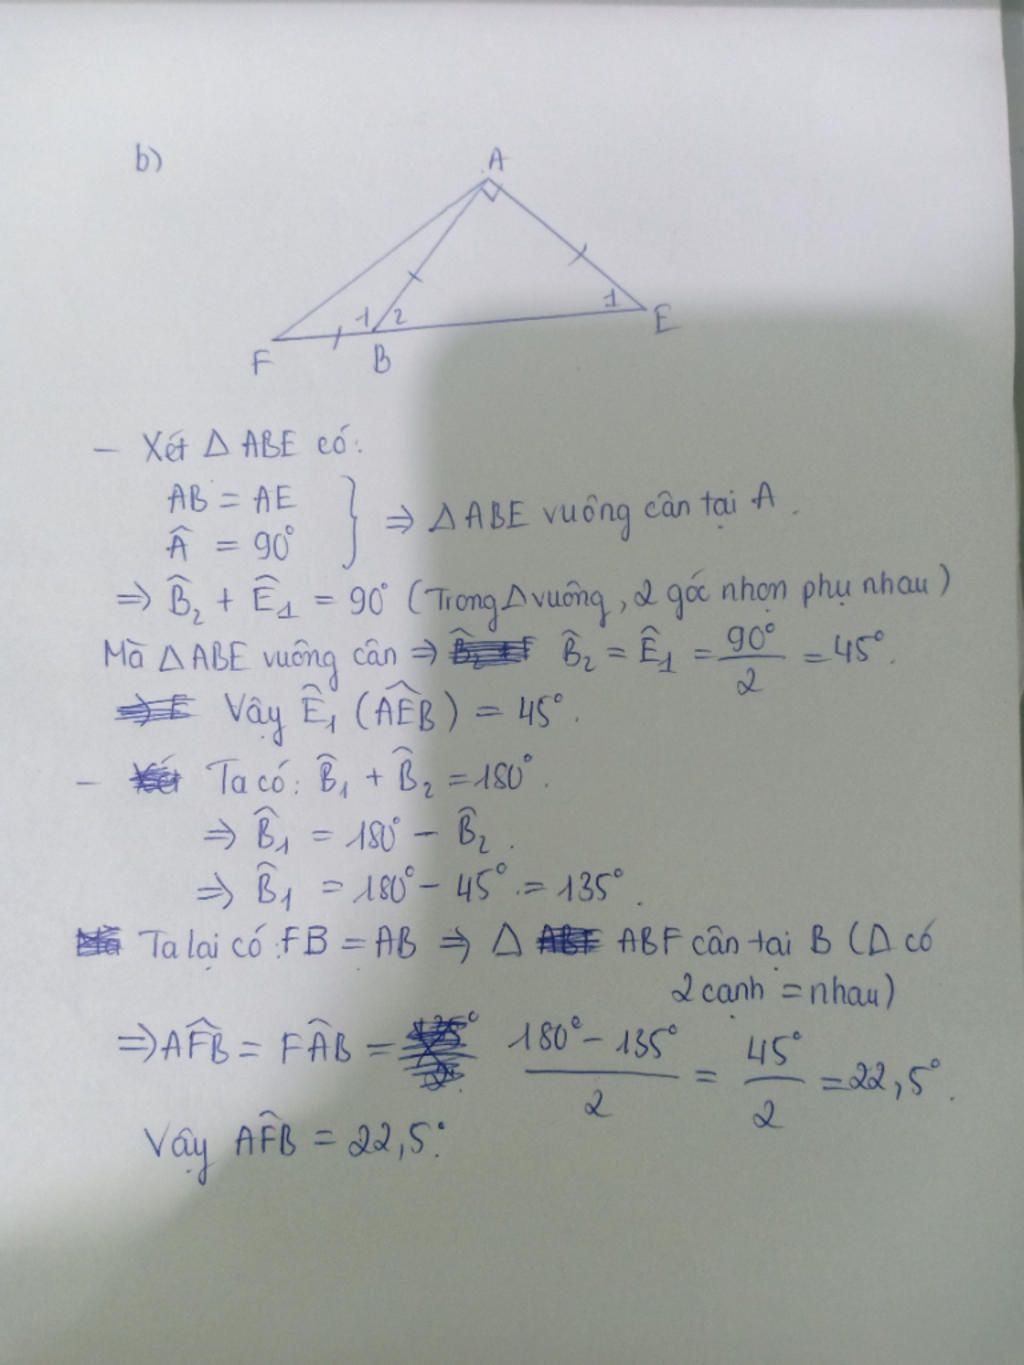 b)
A
1 2 1
F B E
- Xét Δ ABE có:
AB = AE
Â = 90°
} ⇒ Δ ABE vuông cân tại A.
⇒ B̂₂ + Ê₁ = 90° (Trong Δ vuông, 2 góc nhọn phụ nhau)
Mà Δ ABE vuông cân ⇒ B̂₂ = Ê₁ = 90°/2 = 45°.
Vậy Ê₁ (AÊB) = 45°.
- Ta có: B̂₁ + B̂₂ = 180°.
⇒ B̂₁ = 180° - B̂₂.
⇒ B̂₁ = 180° - 45° = 135°.
Ta lại có: FB = AB ⇒ Δ ABF cân tại B (Δ có
2 cạnh = nhau)
⇒ AF̂B = FÂB = (180° - 135°)/2 = 45°/2 = 22,5°.
Vậy AF̂B = 22,5°.